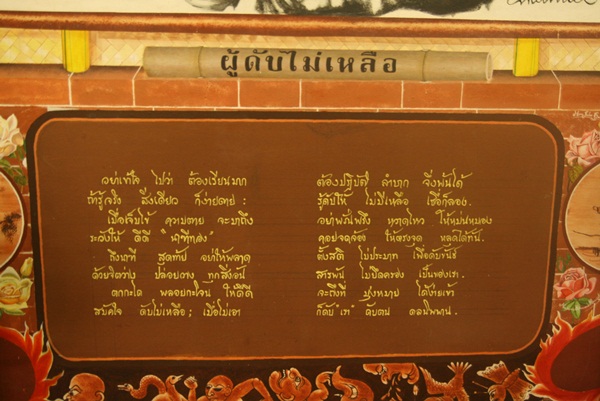 ผู้ดับไม่เหลือ
อย่าเข้าใจ ไปว่า ต้องเรียนมาก
ต้องปฏิบัติ ลำบาก จึงพ้นได้
ถ้ารู้จริง สิ่งเดียว ก็ง่ายดาย :
รู้ดับให้ ไม่มีเหลือ เชื่อก็ลอง.
เมื่อเจ็บไข้ ความตาย จะมาถึง
อย่าพรั่นพรึง หวาดไหว ให้หม่นหมอง
ระวังให้ ดีดี "นาทีทอง"
คอยจดจ้อง ให้ตรงจุด หลุดได้ทัน.
ถึงนาที สุดท้าย อย่าให้พลาด
ตั้งสติ ไม่ประมาท เพื่อดับขันธ์
ด้วยจิตว่าง ปล่อยวาง ทุกสิ่งอัน
สารพัน ไม่ยึดครอง เป็นของเรา.
ตกกะได พลอยกะโจน ให้ดีดี
จะถึงที่ มุ่งหมาย ได้ง่ายเข้า
สมัครใจ ดับไม่เหลือ; เมื่อไม่เอา
ก็ดับ "เรา" ดับตน ดลนิพพาน.